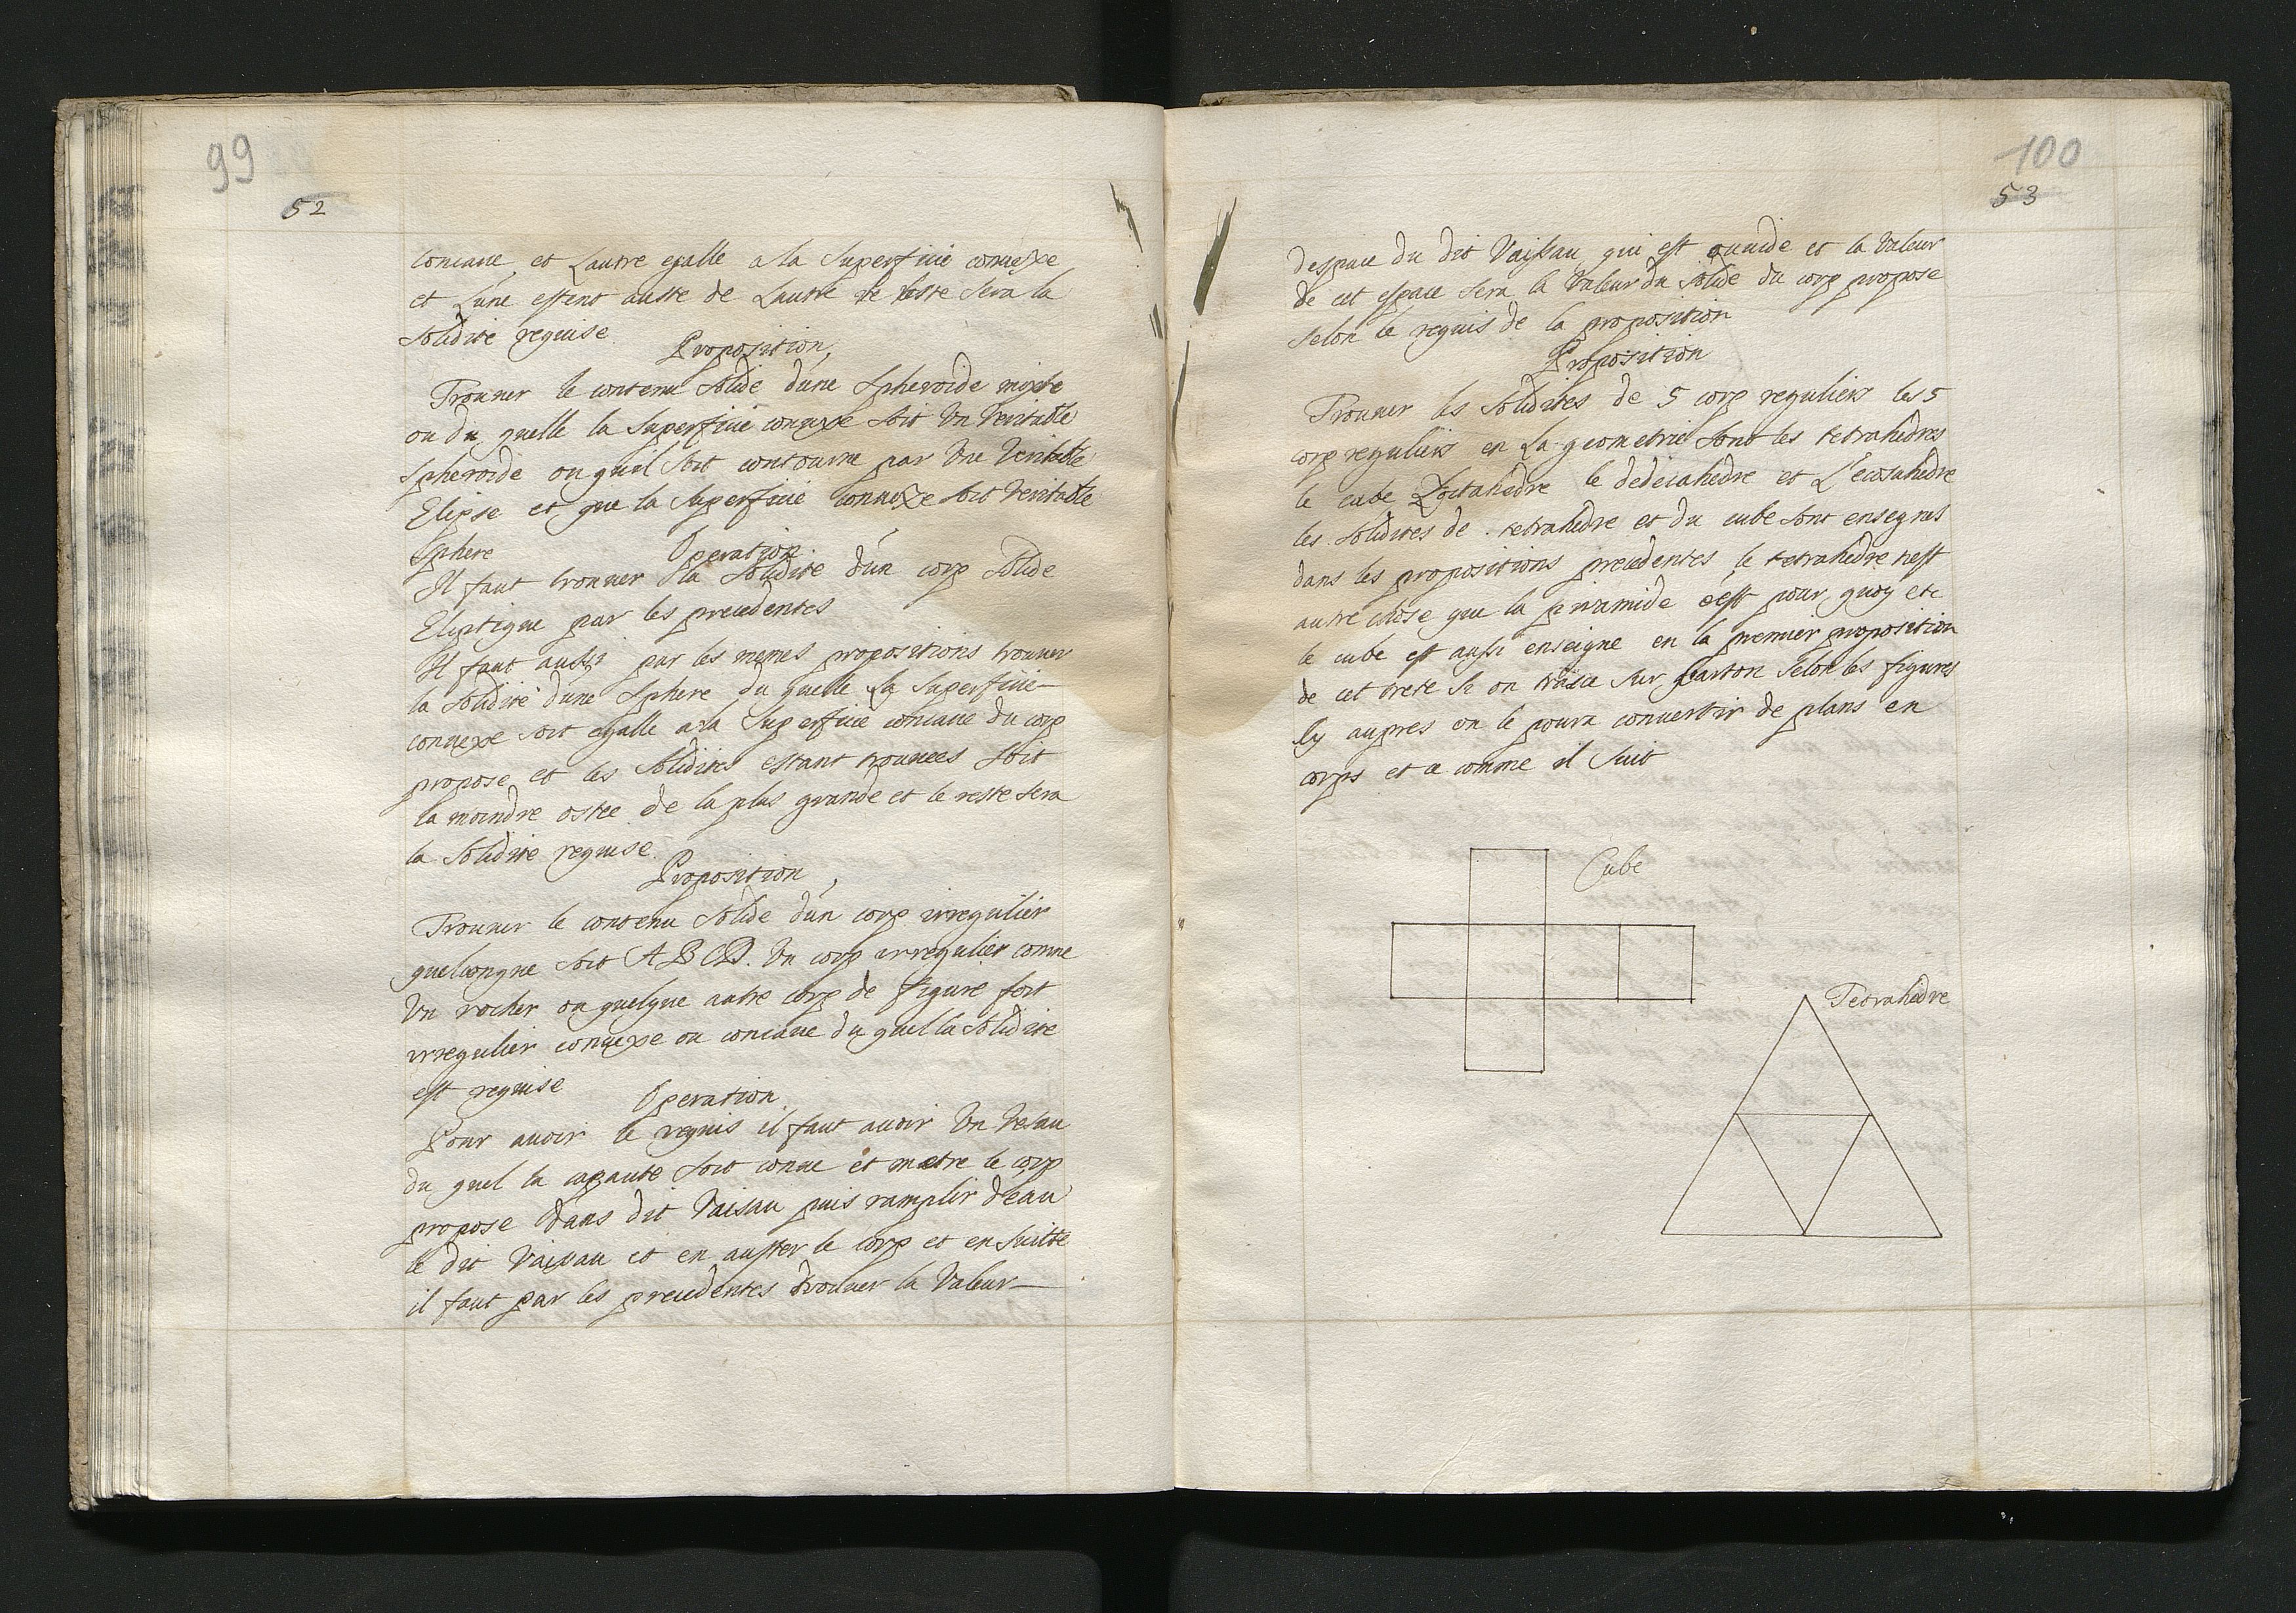 99
52
concaue et Lautre egalle a la superficie conuexe
et Lune estent austé de Lautre le reste sera la
solidité requise
Proposition,
Trouuer le contenu solide d'une spheroide mixte
ou du quelle la superficie conuexe soit Un Veritable
spheroide ou quil soit contourné par Une Veritable
Elipse et que la superficie connexe soit Veritable
sphere
Operation.
Il faut trouuer la solidité d'un corp solide
Eliptique par les precedentes
Il faut aussi par les memes propositions trouuer
la solidité d'une sphere du quelle la superficie
conuexe soit egalle a la superficie concaue du corp
propose et les solidites estant trouuees soit
la moindre ostee de la plus grande et le reste sera
la solidité requise.
Proposition,
Trouuer le contenu solide d'un corp irregulier
quelcongne soit ABCD. Un corp irregulier comme
Un rocher ou quelque autre corp de figure fort
irregulier conuexe ou concaue du quel la solidité
est requise
Operation
Pour auoir le requis il faut auoir Un Vesau
du quel la capacité soit conue et metre le corp
propose dans dit Vaisau puis ramplir d'eau
le dit Vaissau et en auster le corp et en suitte
il faut par les precedentes trouuer la Valeur
100
53
despace du dit Vaissau qui est ouuide et la Valeur
de cet espace sera la Valeur du solide du corp propose
selon le requis de la proposition
Proposition
Trouuer les solidites de 5 corp reguliers les 5
corp reguliers en La geometrie sont les tetrahedres
le cube Loctahedre le dedecahedre et L'ecosahedre
les solidites de tetrahedre et du cube sont ensegnes
dans les propositions precedentes le tetrahedre nest
autre chose que la piramide c'est pour quoy etc
le cube est aussi enseigne en la premier proposition
de cet trete si on trasce sur carton selon les figures
Cy aupres on le poura conuertir de plans en
corps et ce comme il suit
Cube
Tetrahedre